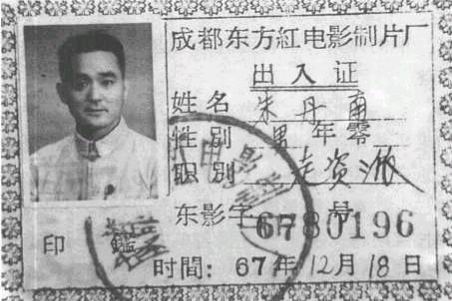 成都东方紅电影制片厂
出入证
姓名 朱丹南
性别 男 年零
职别 走资派
东影字 6780196 号
印 鑑
时間: 67年12月18日